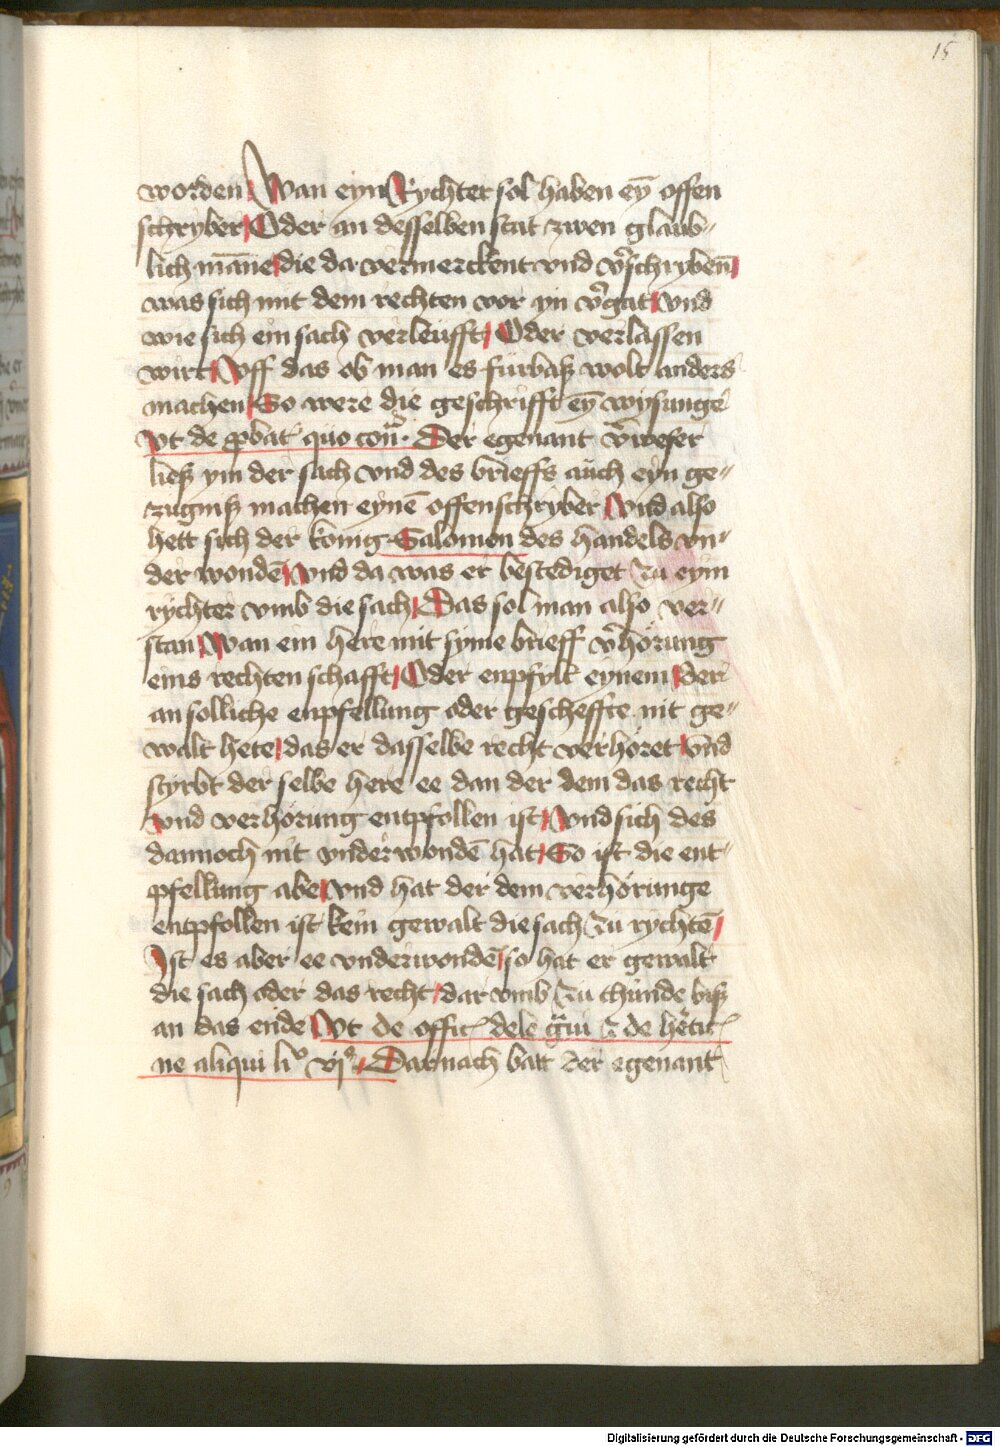 15
worden Wan eyn Rychter sol haben eȳ offen
schryber Oder an desselben stat zwen glaub⸗
lich mañe die da vermerckent vnd v̄schryben
was sich mit dem rechten vor yn v̄gat vnd
wie sich ein sach verleufft Oder verlassen
wirt Vff das ob man es fürbaß wolt anders
machen So were die geschrifft eȳ wysunge
Vt de ꝓbat quo Der egenant v̄weser
ließ ym der sach vnd des brieffs auch eyn ge⸗
zugniß machen eynē offenschryber Vnd also
hett sich der konig Salomon des handels vn⸗
der wondē vnd da was er bestediget zu eym
rychter vmb die sach Das sol man also ver⸗
stan Wan ein here mit syme brieff v̄horung
eins rechten schafft Oder enpfylt eynem Der
an solliche enpfellung oder gescheffte nit ge⸗
walt hete das er dasselbe recht verhoret vnd
styrbt der selbe here ee dan der dem das recht
vnd verhorung entpfollen ist vnd sich des
dannoch nit vnderwondē hat So ist die ent⸗
pfellung abe vnd hat der dem verhorunge
entpfollen ist kein gewalt die sach zu rychtē
Ist es aber ee vnderwondē so hat er gewalt
die sach oder das recht dar vmb zu thunde biß
an das ende Vt de offic dele de
ne aliqui liº vjº Darnach batt der egenant
Digitalisierung gefördert durch die Deutsche Forschungsgemeinschaft - DFG